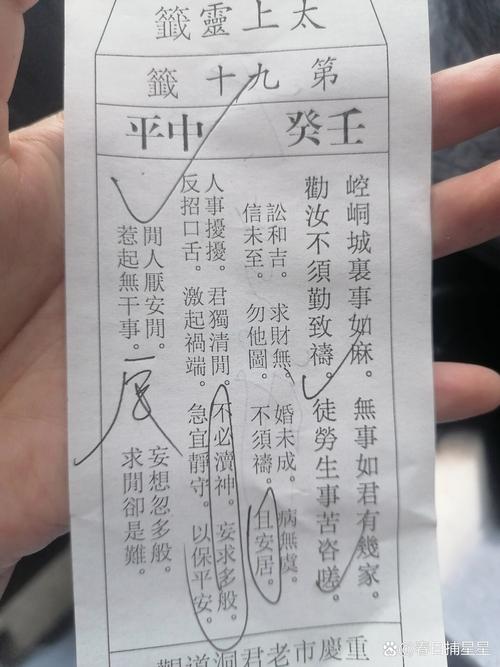 太上靈籤
第九十籤
壬癸 中平
崆峒城裏事如麻。無事如君有幾家。
勸汝不須勤致禱。徒勞生事苦咨嗟。
訟和吉。求財無。婚未成。病無虞。
信未至。勿他圖。不須禱。且安居。
人事擾擾。君獨清閒。不必瀆神。妄求多般。
反招口舌。激起禍端。急宜靜守。以保平安。
閒人厭安閒。妄想忽多般。
惹起無干事。求閒卻是難。
重慶市老君洞道觀
春日捕星星